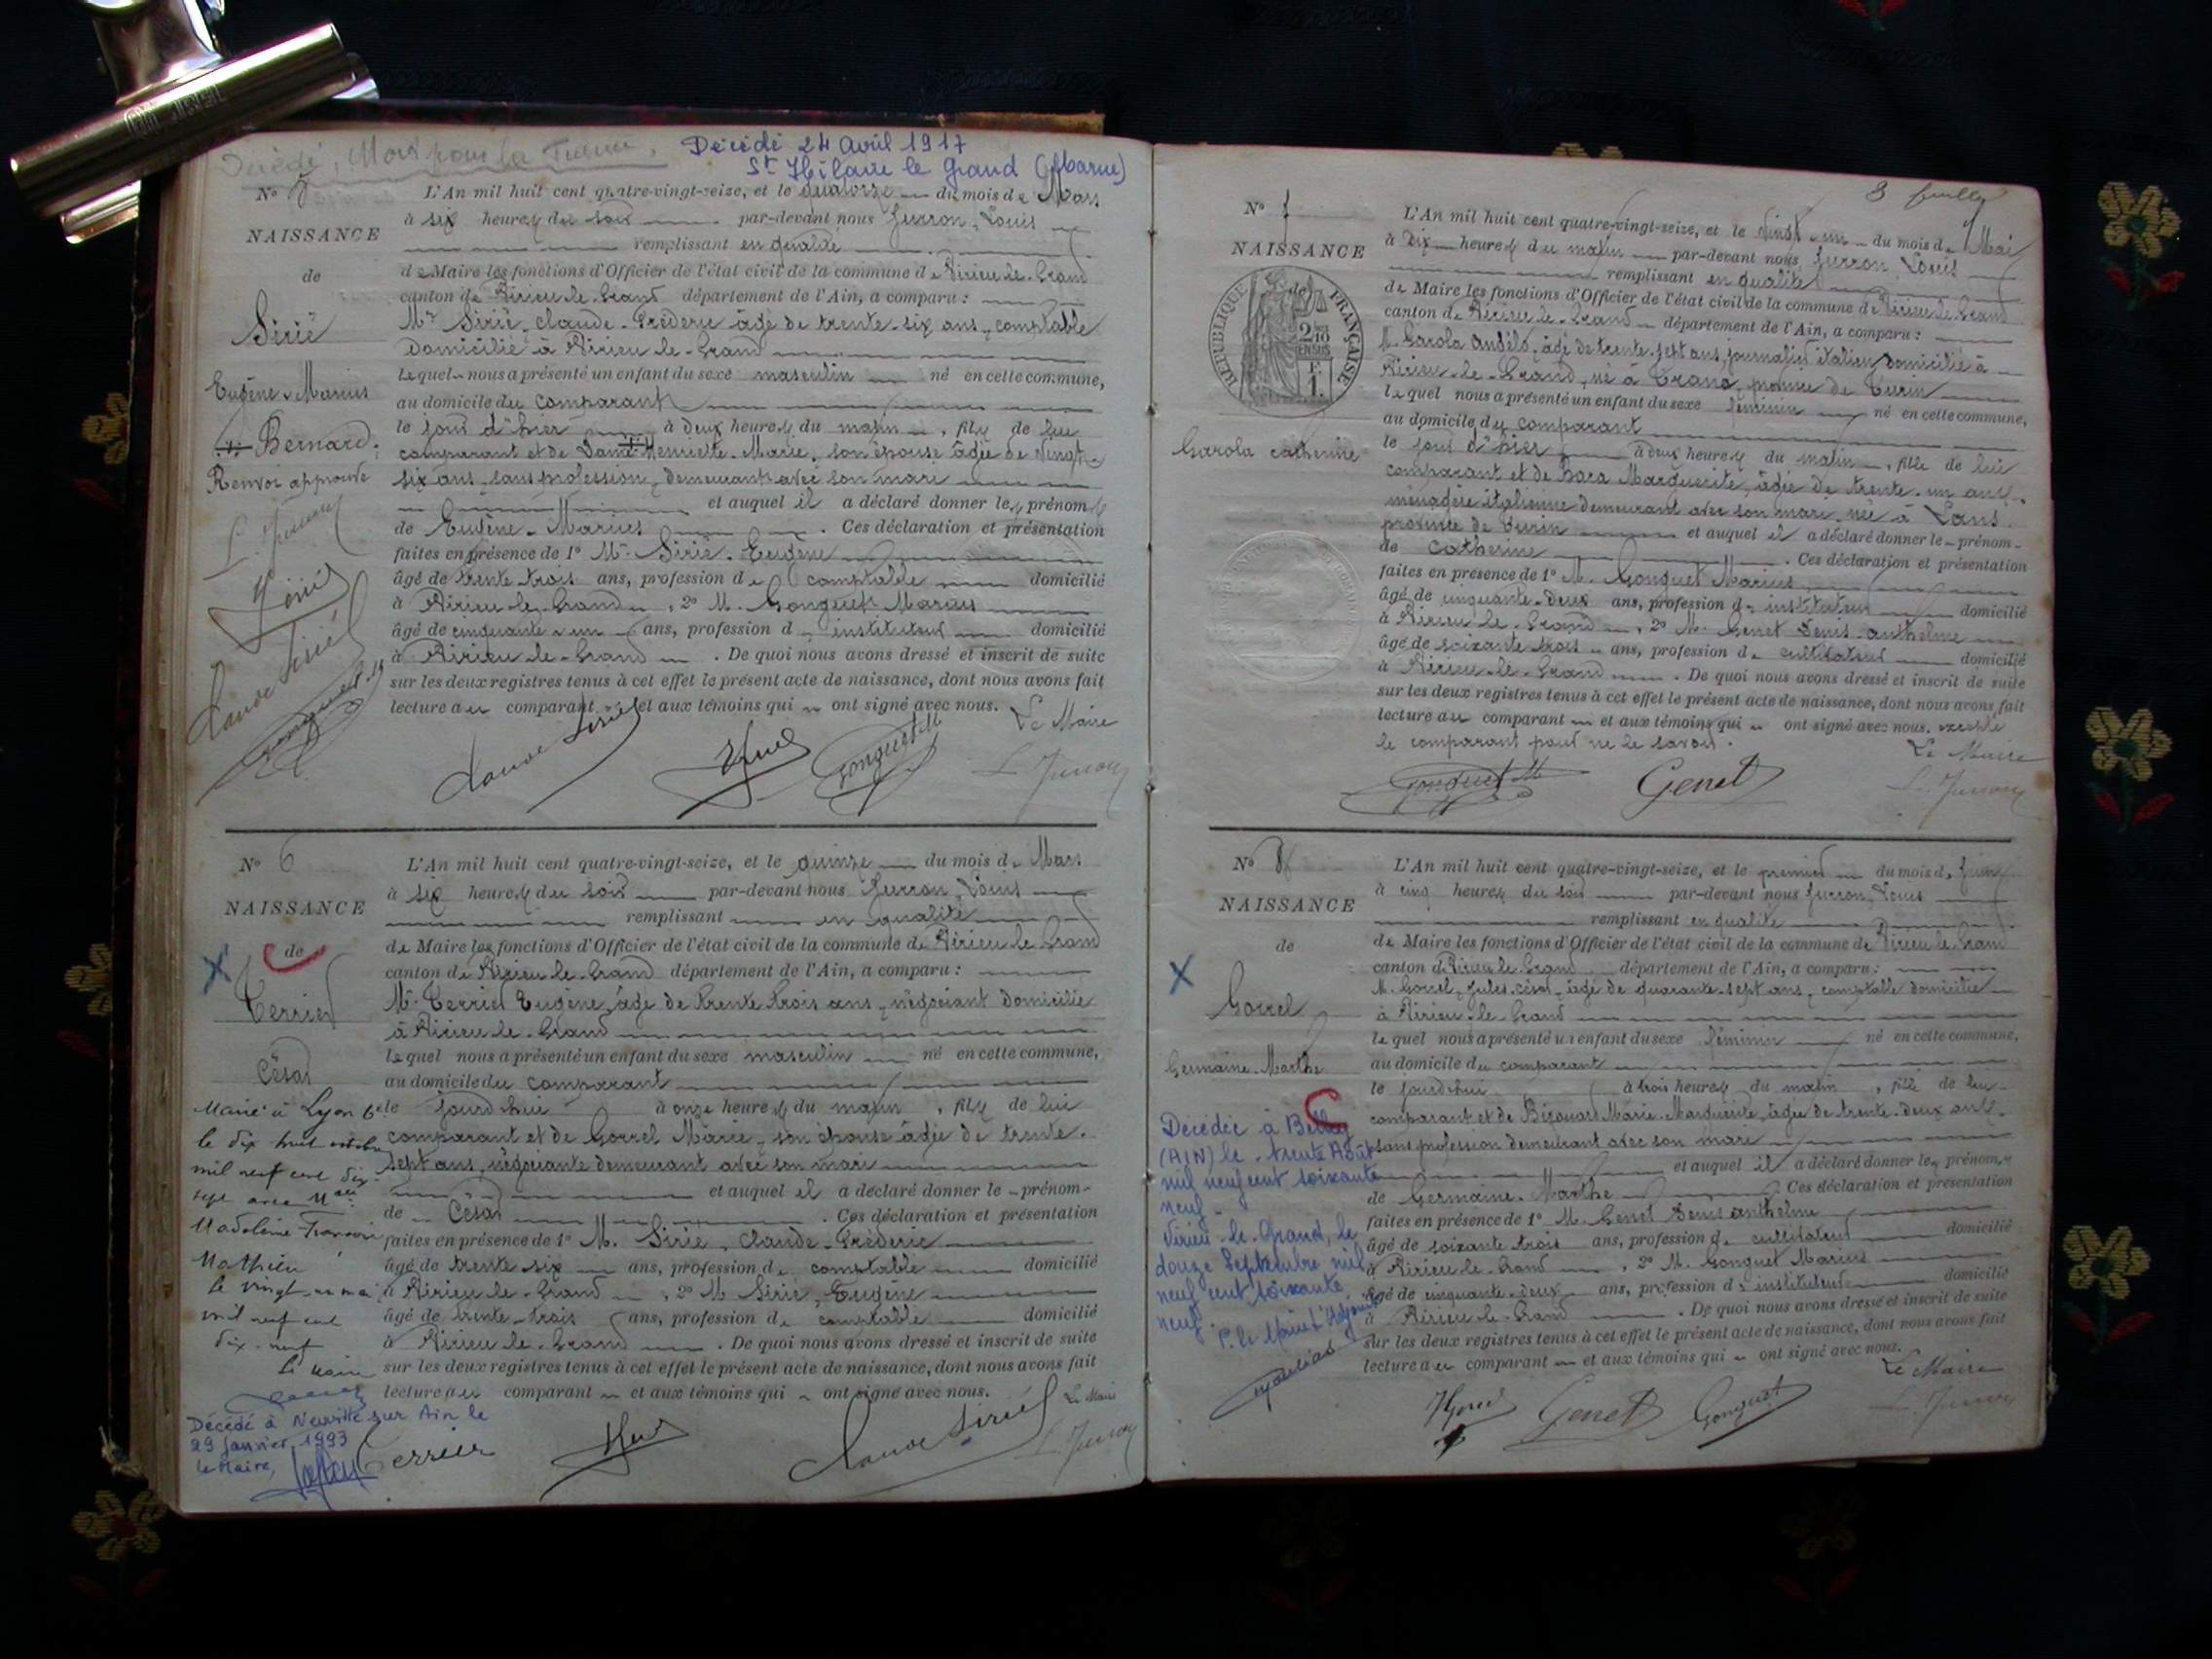 Décédé, Mort pour la France.
Décédé 24 Avril 1917
St Hilaire le Grand (Marne)
No 5
NAISSANCE
de
Sirié
Eugène-Marius
Bernard:
Renvoi approuvé
L'An mil huit cent quatre-vingt-seize, et le quatorze du mois de Mars
à six heures du soir par-devant nous Jurron, Louis
remplissant en qualité
de Maire les fonctions d'Officier de l'état civil de la commune de Virieu-le-Grand
canton de Virieu-le-Grand département de l'Ain, a comparu :
Mr Sirié, Claude-Fréderic âgé de trente-six ans, comptable
domicilié à Virieu-le-Grand
lequel nous a présenté un enfant du sexe masculin né en cette commune,
au domicile du comparant
le jour d'hier à deux heures du matin, fils de lui
comparant et de Henriette-Marie, son épouse âgée de vingt-
six ans, sans profession, demeurant avec son mari
et auquel il a déclaré donner les prénoms
de Eugène-Marius. Ces déclaration et présentation
faites en présence de 1o Mr. Sirié, Eugène
âgé de trente-trois ans, profession de comptable domicilié
à Virieu-le-Grand, 2o M. Gonguet Marius
âgé de cinquante-un ans, profession d'instituteur domicilié
à Virieu-le-Grand. De quoi nous avons dressé et inscrit de suite
sur les deux registres tenus à cet effet le présent acte de naissance, dont nous avons fait
lecture au comparant et aux témoins qui ont signé avec nous. Le Maire
Claude Sirié Gonguet M L. Jurron
No 6
NAISSANCE
de
Terrier
César
Marié à Lyon 6e
le dix huit octobre
mil neuf cent dix-
sept avec Melle
Madeleine Françoise
Mathieu
le vingt-un mai
mil neuf cent
dix-neuf
Le Maire
Décédé à Neuville sur Ain le
29 Janvier 1993
le Maire,
L'An mil huit cent quatre-vingt-seize, et le quinze du mois de Mars
à six heures du soir par-devant nous Jurron, Louis
remplissant en qualité
de Maire les fonctions d'Officier de l'état civil de la commune de Virieu-le-Grand
canton de Virieu-le-Grand département de l'Ain, a comparu :
Mr Terrier Eugène, âgé de trente trois ans, négociant domicilié
à Virieu-le-Grand
lequel nous a présenté un enfant du sexe masculin né en cette commune,
au domicile du comparant
le jourd'hui à onze heures du matin, fils de lui
comparant et de Gorrel Marie, son épouse âgée de trente-
sept ans, négociante demeurant avec son mari
et auquel il a déclaré donner le prénom
de César. Ces déclaration et présentation
faites en présence de 1o M. Sirié, Claude-Fréderic
âgé de trente six ans, profession de comptable domicilié
à Virieu-le-Grand, 2o M Sirié, Eugène
âgé de trente-trois ans, profession de comptable domicilié
à Virieu-le-Grand. De quoi nous avons dressé et inscrit de suite
sur les deux registres tenus à cet effet le présent acte de naissance, dont nous avons fait
lecture au comparant et aux témoins qui ont signé avec nous.
Le Maire
Terrier Claude Sirié L. Jurron
3 feuille
No 7
NAISSANCE
de
RÉPUBLIQUE FRANÇAISE
Garola Catherine
L'An mil huit cent quatre-vingt-seize, et le vingt-un du mois de Mai
à dix heures du matin par-devant nous Jurron, Louis
remplissant en qualité
de Maire les fonctions d'Officier de l'état civil de la commune de Virieu-le-Grand
canton de Virieu-le-Grand département de l'Ain, a comparu :
M. Garola Angélo, âgé de trente-sept ans, journalier italien domicilié à
Virieu-le-Grand, né à Trana, province de Turin
lequel nous a présenté un enfant du sexe féminin né en cette commune,
au domicile du comparant
le jour d'hier à deux heures du matin, fille de lui
comparant et de Marguerite, âgée de trente-un ans,
ménagère italienne demeurant avec son mari, née à
province de Turin et auquel il a déclaré donner le prénom
de Catherine. Ces déclaration et présentation
faites en présence de 1o M. Gonguet Marius
âgé de cinquante-deux ans, profession d'instituteur domicilié
à Virieu-le-Grand, 2o M. Genet Denis-Anthelme
âgé de soixante trois ans, profession de cultivateur domicilié
à Virieu-le-Grand. De quoi nous avons dressé et inscrit de suite
sur les deux registres tenus à cet effet le présent acte de naissance, dont nous avons fait
lecture au comparant et aux témoins qui ont signé avec nous. excepté
le comparant pour ne le savoir.
Le Maire
Gonguet M Genet L. Jurron
No 8
NAISSANCE
de
Gorrel
Germaine-Marthe
Décédée à Belley
(AIN) le trente Août
mil neuf cent soixante
neuf -
Virieu-le-Grand, le
douze Septembre mil
neuf cent soixante
neuf.
P. le Maire l'Adjoint
L'An mil huit cent quatre-vingt-seize, et le premier du mois de Juin
à cinq heures du soir par-devant nous Jurron, Louis
remplissant en qualité
de Maire les fonctions d'Officier de l'état civil de la commune de Virieu-le-Grand
canton de Virieu-le-Grand département de l'Ain, a comparu :
M. Gorrel, Jules-César, âgé de quarante-sept ans, comptable domicilié
à Virieu-le-Grand
lequel nous a présenté un enfant du sexe féminin né en cette commune,
au domicile du comparant
le jourd'hui à trois heures du matin, fille de lui
comparant et de Marie-Marguerite, âgée de trente-deux ans,
sans profession demeurant avec son mari
et auquel il a déclaré donner les prénoms
de Germaine-Marthe. Ces déclaration et présentation
faites en présence de 1o M. Genet Denis Anthelme
âgé de soixante trois ans, profession de cultivateur domicilié
à Virieu-le-Grand, 2o M. Gonguet Marius
âgé de cinquante-deux ans, profession d'instituteur domicilié
à Virieu-le-Grand. De quoi nous avons dressé et inscrit de suite
sur les deux registres tenus à cet effet le présent acte de naissance, dont nous avons fait
lecture au comparant et aux témoins qui ont signé avec nous.
Le Maire
Genet Gonguet L. Jurron